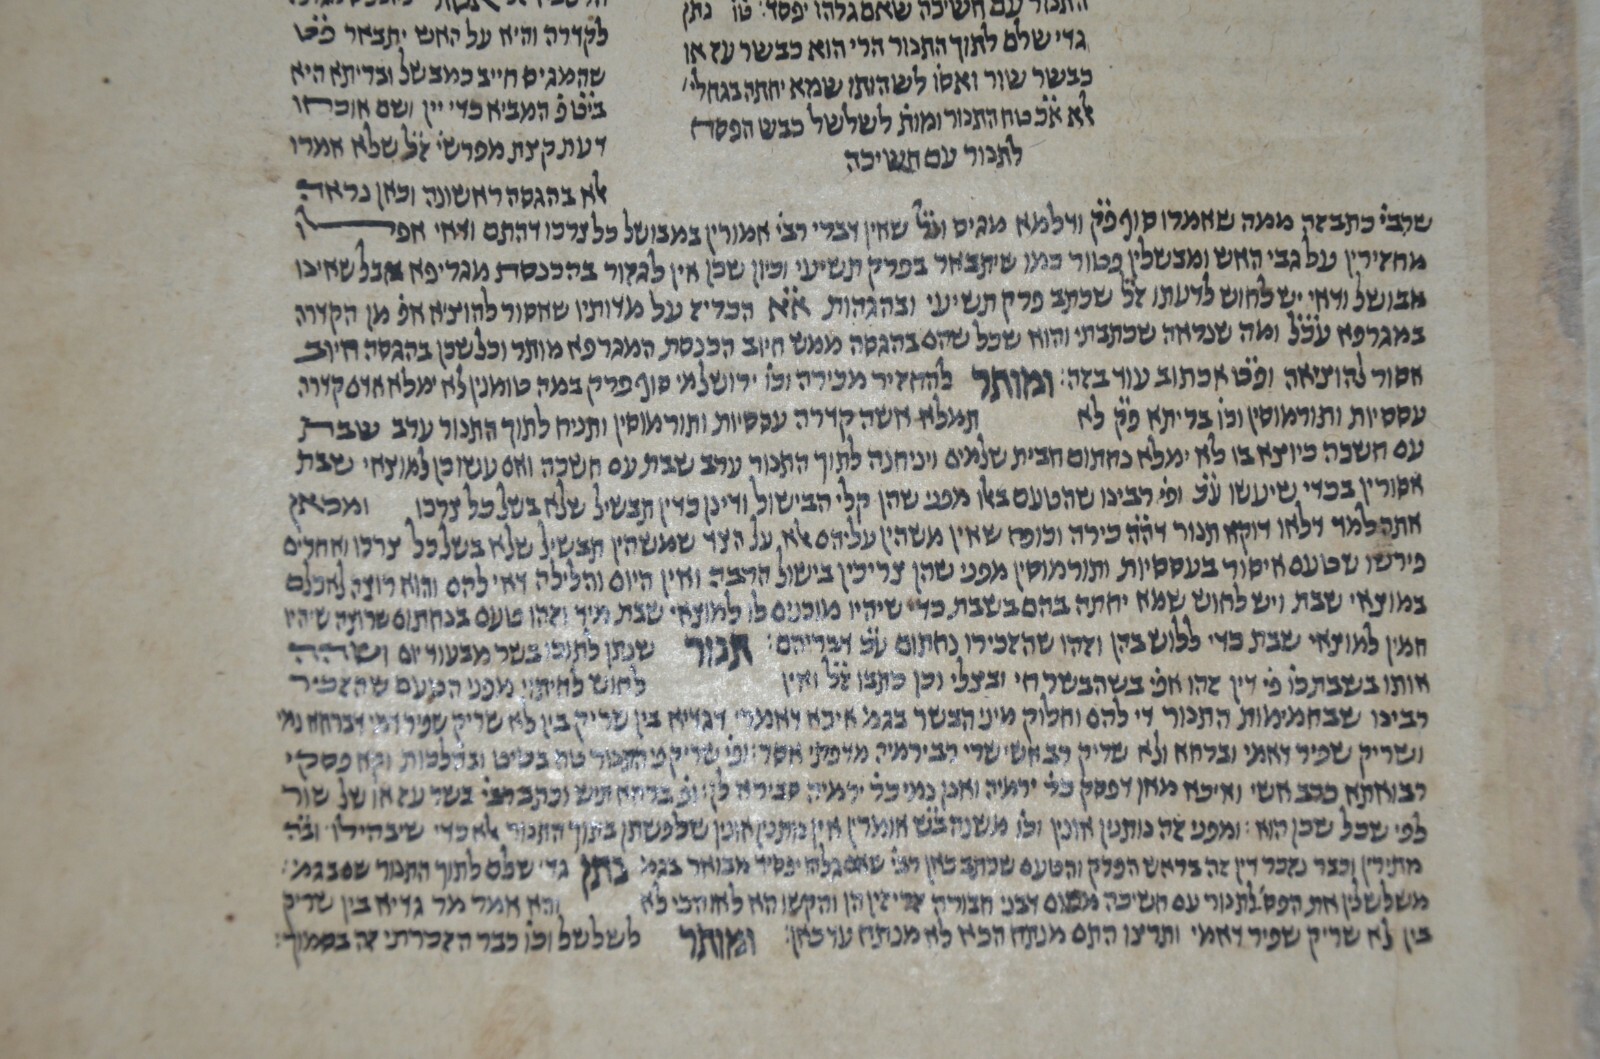 התנור עם חשיכה שאם גלהו יפסד: נתן
גדי שלם לתוך התנור הרי הוא כבשר עז או
כבשר שור ואסו לשהותו שמא יחתה בגחלי׳
לא אכ טח התנור ומות׳ לשלשל כבש הפסח
לתנור עם חשיכה
לקדרה והיא על האש יתבאר
שהמגיס חייב כמבשל ובריתא היא
המביא כדי יין ושם אוכיחו
דעת קצת מפרשי׳ ז״ל שלא אמרו
לא בהגסה ראשונה וכאן נראה
שרבי׳ כתב זה ממה שאמרו סוף פ״ק ודלמא מגיס שאין דברי רבי׳ אמורין במבושל כל צרכו דהתם ודאי אפילו
מחזירין על גבי האש ומבשלין פטור כמו שיתבאר בפרק תשיעי וכיון שכן אין לגזור בהכנסת מגריפא אבל שאינו
מבושל ודאי יש לחוש לדעתו ז״ל שכתב פרק תשיעי ובהגהות א״א הפריז על מדותיו שאסור להוציא אפ׳ מן הקדרה
במגרפא עכ״ל ומה שנראה שכתבתי והוא שכל שהם בהגסה ממש חיוב הכנסת המגרפא מותר וכל שכן בהגסה חיוב
אסור להוציאה אכתוב עוד בזה: ומותר להחזיר מכירה וכו׳ ירושלמי סוף פרק במה טומנין לא ימלא אדם קדרה
עססיות ותורמוסין וכו׳ בריתא פ״ק לא תמלא אשה קדרה עססיות ותורמוסין ותניח לתוך התנור ערב שבת
עם חשכה כיוצא בו לא ימלא נחתום חבית של מים ויניחנה לתוך התנור ערב שבת עם חשכה ואם עשו כן למוצאי שבת
אסורין בכדי שיעשו ע״כ ופי׳ רבינו שהטעם באלו מפני שהן קלי הבישול ודינן כדין תבשיל שלא בשל כל צרכו ומכאן
אתה למד דלאו דוקא תנור כירה וכופח שאין משהין עליהם ולא על הצד שמשהין תבשיל שלא בשל כל צרכו ואחרים
פירשו שטעם איסור בעססיות ותורמוסין מפני שהן צריכין בישול הרבה ואין היום והלילה דאי להם והוא רוצה לאכלם
במוצאי שבת ויש לחוש שמא יחתה בהם בשבת כדי שיהיו מוכנים לו למוצאי שבת מיד וזהו טעם בנחתום שרוצה שיהיו
חמין למוצאי שבת כדי ללוש בהן וזהו שהזכירו נחתום ע״כ דבריהם: תנור שנתן לתוכו בשר מבעוד יום ושהה
אותו בשבת כו׳ פי׳ דין זהו אפ׳ בשהבשר חי ובצלי וכן כתבו ז״ל ואין לחוש לחיתוי מפני הטעם שהזכיר
רבינו שבחמימות התנור די להם וחלוק מיני הבשר בגמ׳ איכא דאמרי דגדיא בין שריק בין לא שריק שפיר דמי דברחא נמי
ושריק שפיר דאמי וברחא ולא שריק רב אשי שרי רב ירמיה מדפתי אסר ופי׳ שריק פי התנור טח בטיט ובהלכות וקא פסקי
רבואתא כרב אשי ואיכא מאן דפסק כר׳ ירמיה ואנן נמי כר׳ ירמיה סבירא לן ופי׳ ברחא תיש וכתב רבי׳ בשר עז או של שור
לפי שכל שכן הוא: ומפני זה נותנין אונין וכו׳ משנה ב״ש אומרין אין נותנין אונין של פשתן בתוך התנור אלא כדי שיבהילו וב״ה
מתירין וכבר נזכר דין זה בראש הפרק והטעם שכתב כאן רבי׳ שאם גלהו יפסיד מבואר בגמ׳ נתן גדי שלם לתוך התנור שם בגמ׳:
משלשלין את הפסח לתנור עם חשיכה מטעם דבני חבורה זריזין הן והקשו הא לאו הכי לא והא אמר מר גדיא בין שריק
בין לא שריק שפיר דאמי ותריצו התם מנתח הכא לא מנתח עד כאן: ומותר לשלשל וכו׳ כבר הזכרתי זה בסמוך: